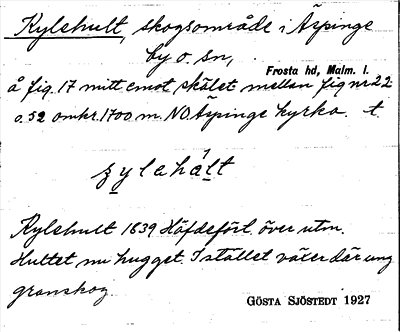 Rylehult, skogsområde i Äspinge
by o. sn,
Frosta hd, Malm. l.
å fig. 17 mitt emot skälet mellan fig nr 22
o. 32 omkr. 1700 m. NO. Äspinge kyrka. t.
rylehált
Rylehult 1639 Häfdeförl. över utm.
Hultet nu hugget. I stället växer där ung
granskog.
GÖSTA SJÖSTEDT 1927